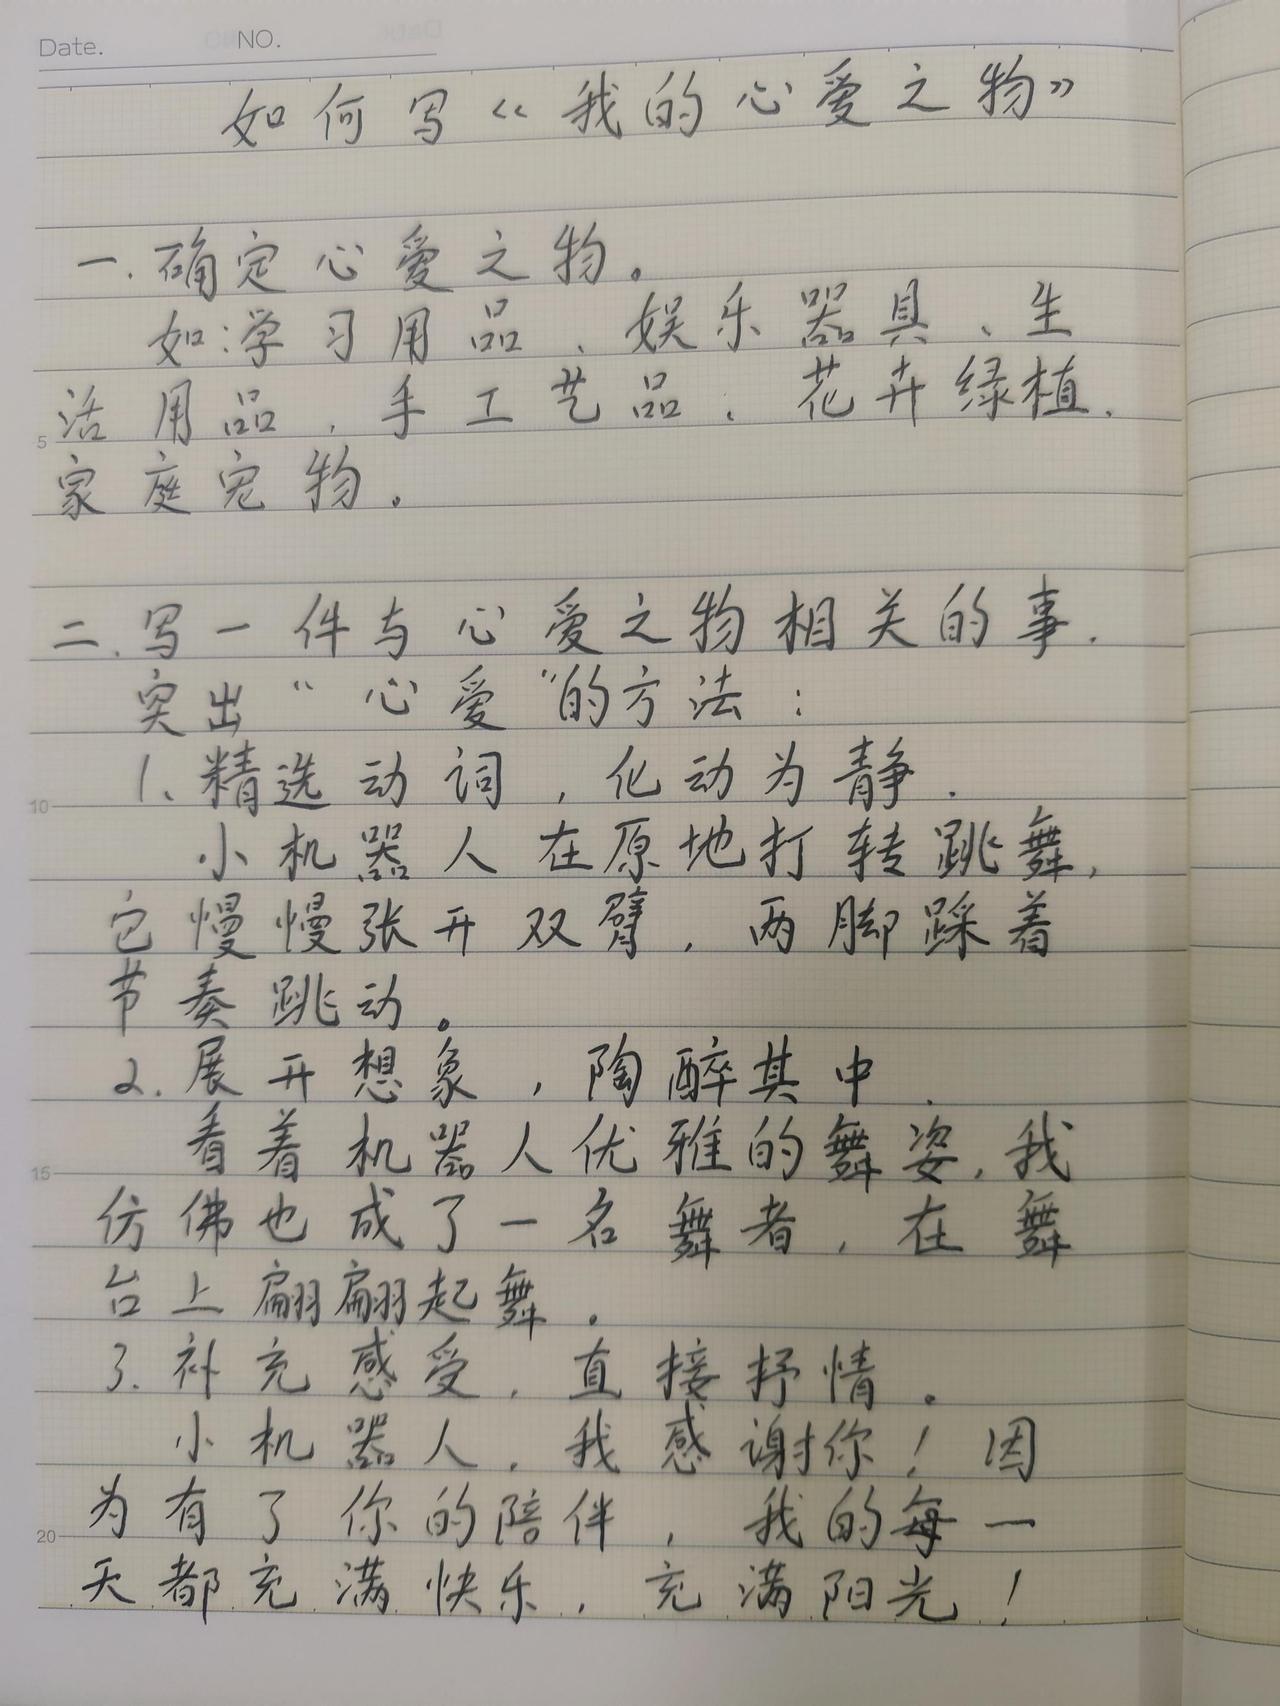 Date. NO.
如何写《我的心爱之物》
一.确定心爱之物。
如:学习用品、娱乐器具、生
活用品、手工艺品、花卉绿植、
5
家庭宠物。
二.写一件与心爱之物相关的事.
突出“心爱”的方法:
1、精选动词,化动为静.
10
小机器人在原地打转跳舞,
它慢慢张开双臂,两脚踩着
节奏跳动。
2.展开想象,陶醉其中.
看着机器人优雅的舞姿,我
15
仿佛也成了一名舞者,在舞
台上翩翩起舞.
3.补充感受,直接抒情。
小机器人,我感谢你!因
为有了你的陪伴,我的每一
20
天都充满快乐,充满阳光!